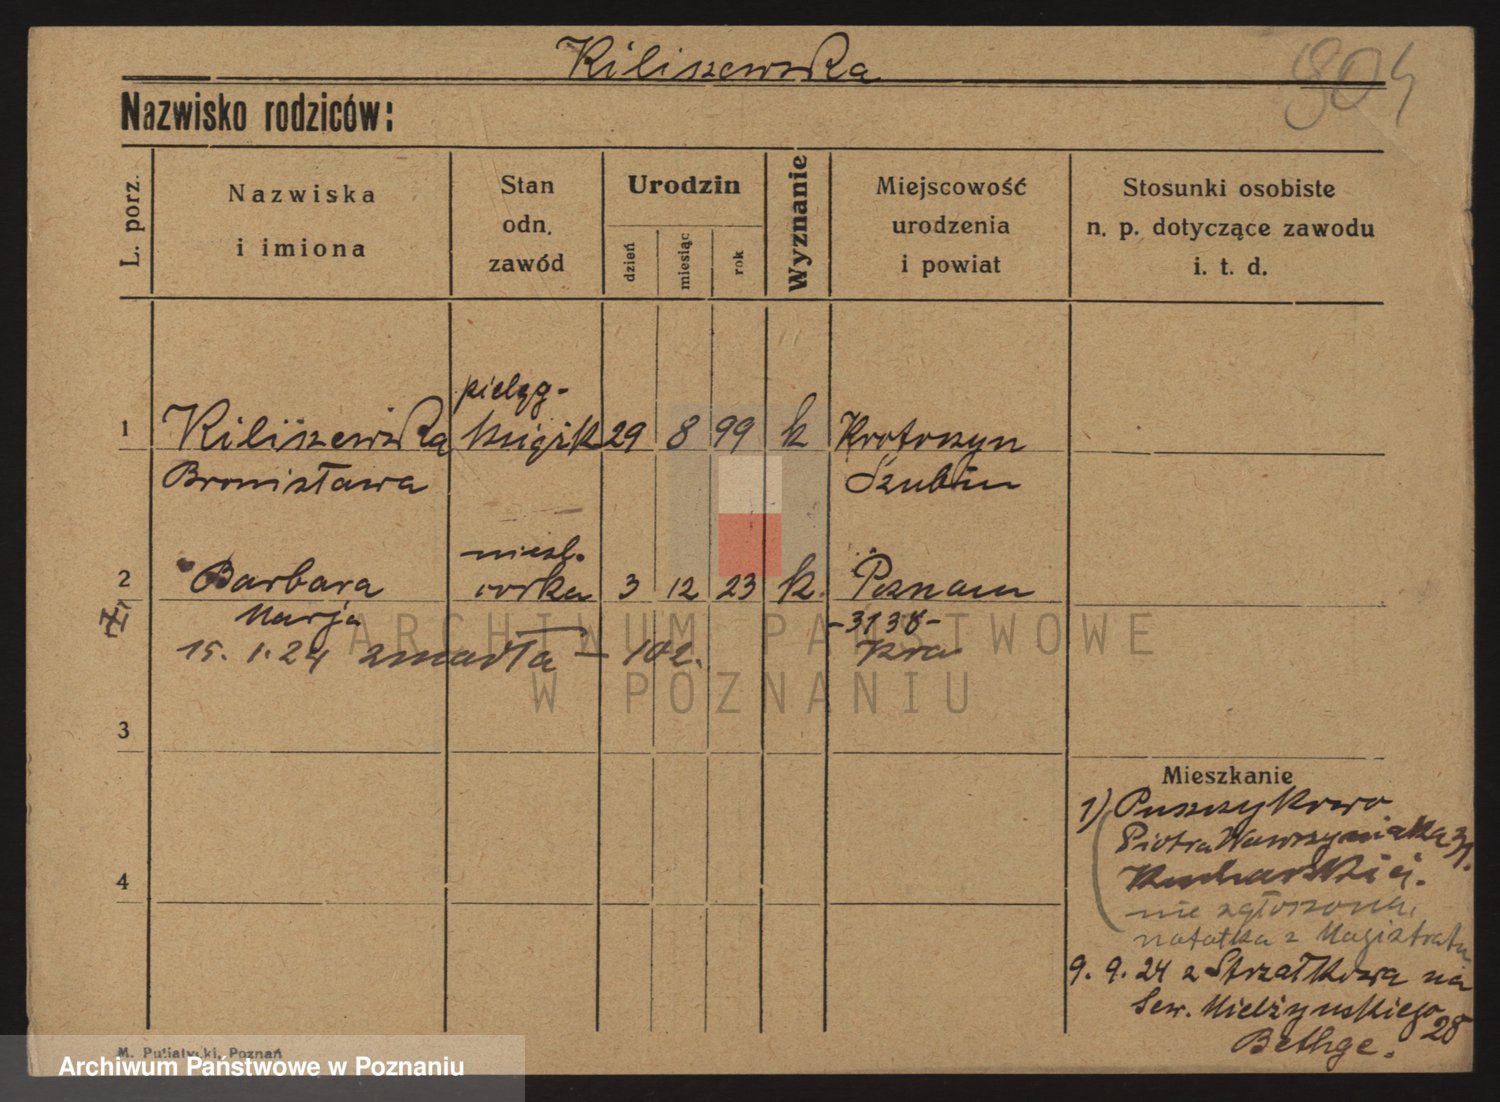 Kiliszewska
804
Nazwisko rodziców:
L. porz.
Nazwiska
i imiona
Stan
odn.
zawód
Urodzin
dzień
miesiąc
rok
Wyznanie
Miejscowość
urodzenia
i powiat
Stosunki osobiste
n. p. dotyczące zawodu
i. t. d.
pielęg-
1 Kiliszewska 29 8 99 k Krotoszyn
Bronisława Szubin
nieśl.
2 Barbara córka 3 12 23 k. Poznań
Marja -3138-
15. 1. 24 zmarła - 102.
ARCHIWUM PAŃSTWOWE
W POZNANIU
3
Mieszkanie
1) Puszczykowo
Piotra Wawrzyniaka 31.
4
nie zgłoszona,
notatka z Magistratu
9. 9. 24 z Strzałkowa na
Sew. Mielżyńskiego 28
Bethge.
M. Putiatycki, Poznań
Archiwum Państwowe w Poznaniu